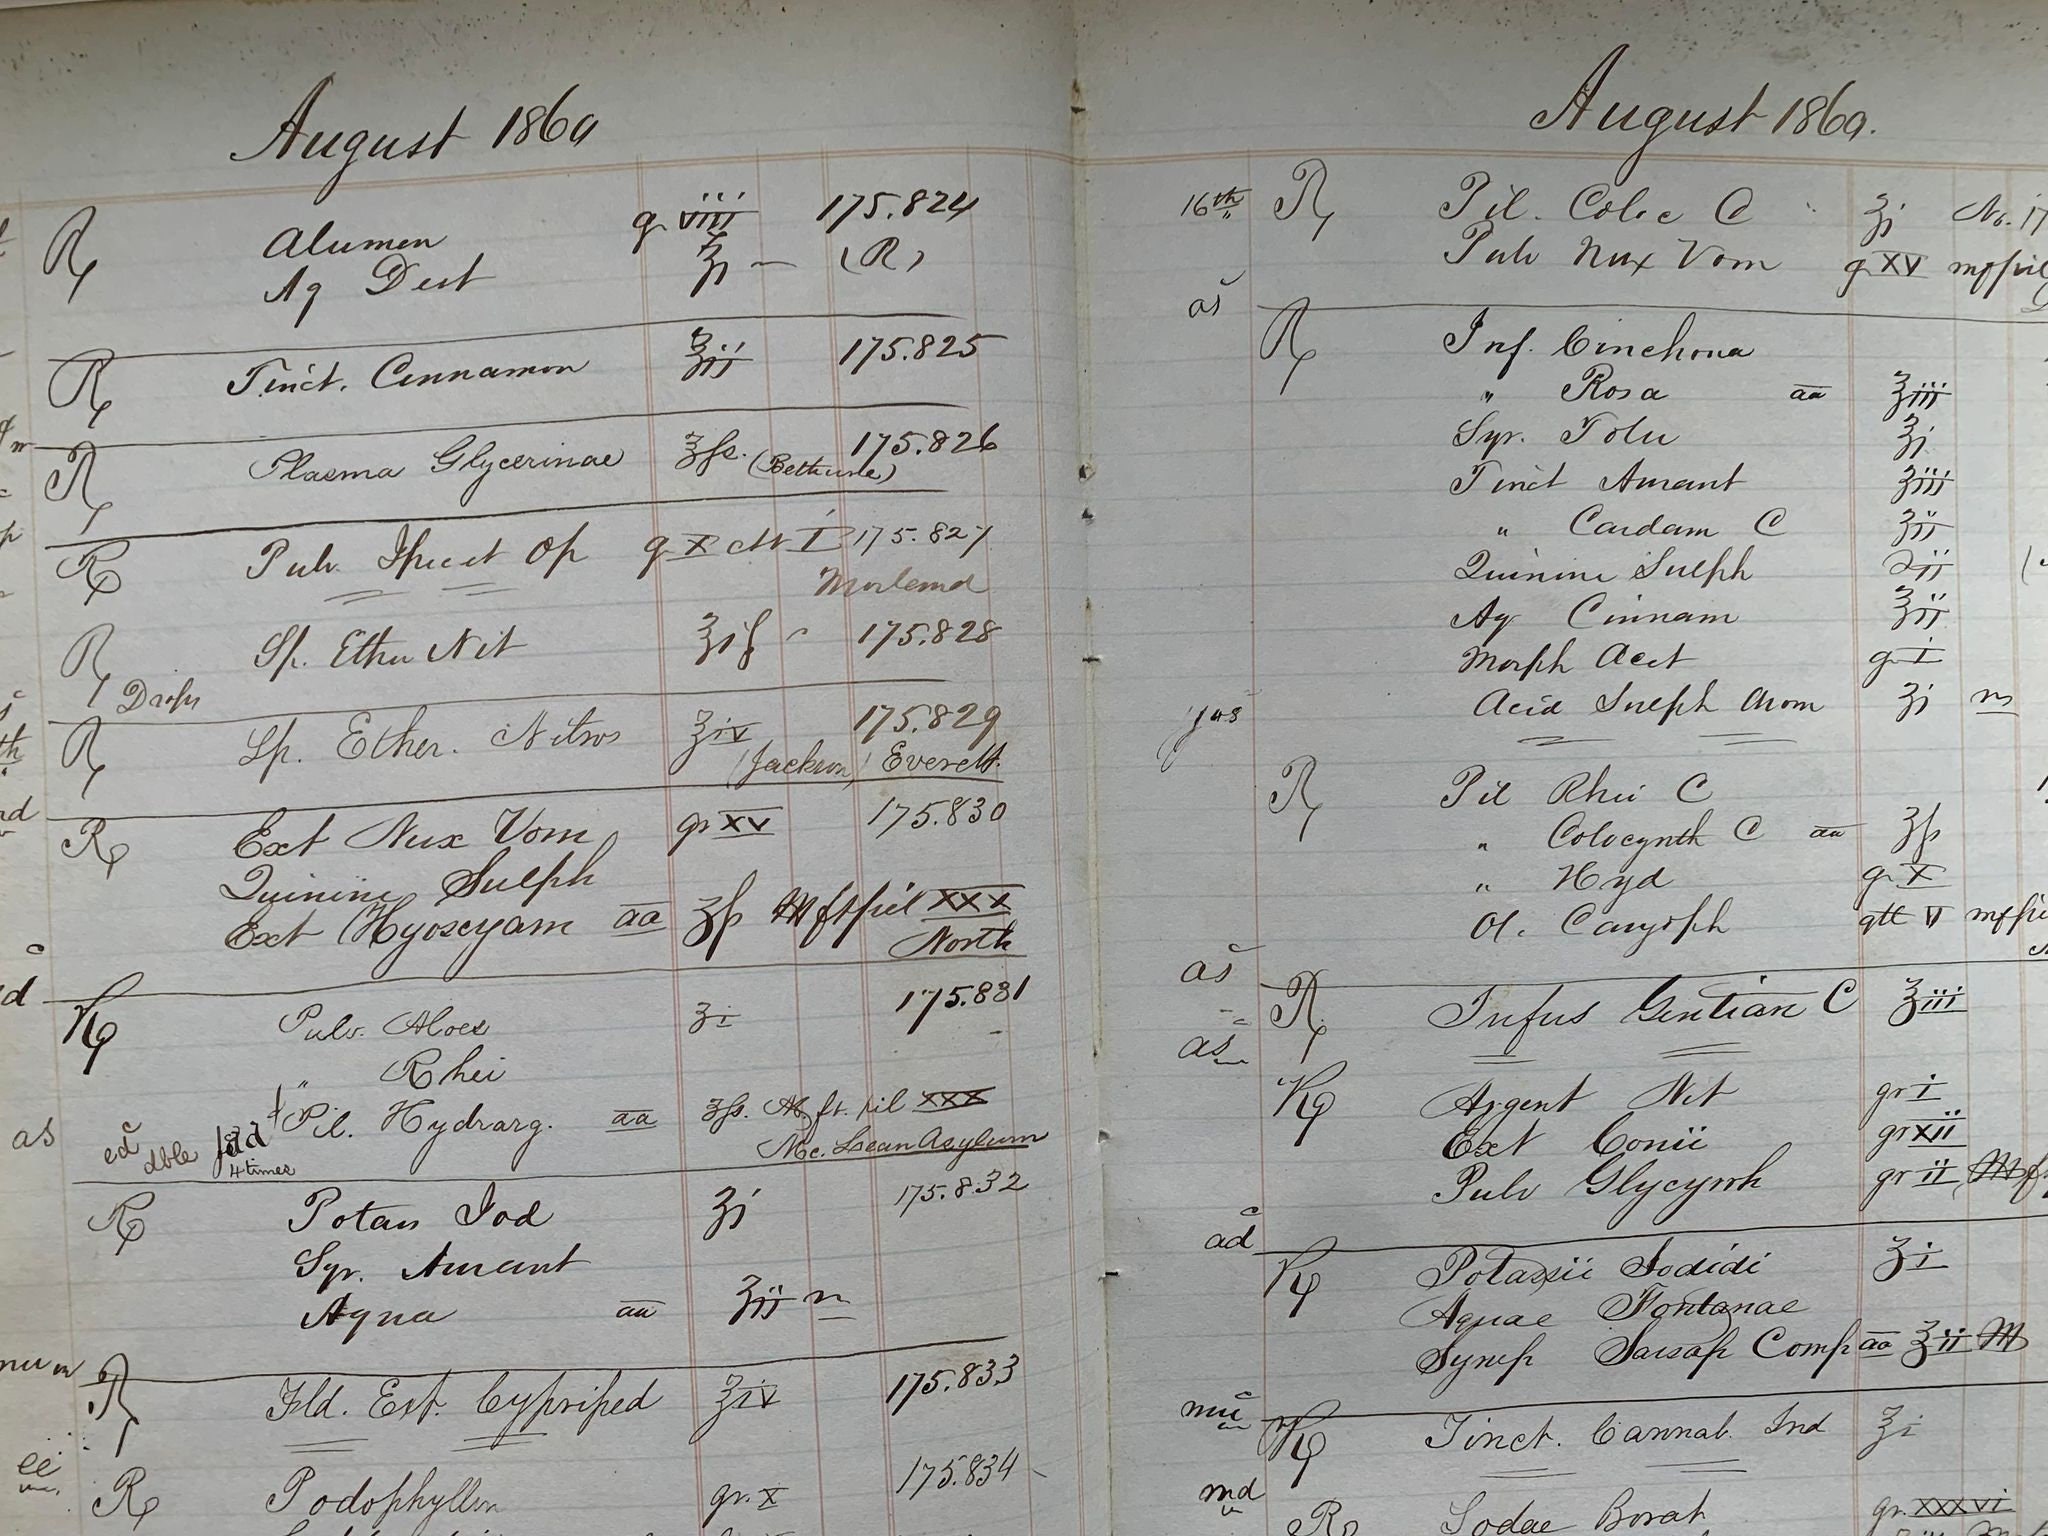 August 1869
℞ Alumen gr viii 175.824
Aq Dest ℥j — (R)
℞ Tinct. Cinnamon ℥ij 175.825
℞ Plasma Glycerinae ℥fs. 175.826
(Bethune)
℞ Pulv Ipec et Op gr X ch I 175.827
℞ Sp. Ether Nit 175.828
Drops
℞ Sp. Ether. Nitros ℥iv 175.829
(Jackson) Everett.
℞ Ext Nux Vom gr XV 175.830
Quinine Sulph
Ext Hyoscyam aa ʒfs M ft pil XXX
North
℞ Pulv. Aloes ʒi 175.831
" Rhei
Pil. Hydrarg. aa ʒfs. M. ft. pil XXX
as
4 times
Mc. Lean Asylum
℞ Potass Iod ʒj 175.832
Syr. Aurant
Aqua aa ℥ij m
℞ Fld. Ext. Cypriped ℥iv 175.833
℞ Podophyllin gr. X 175.834
August 1869.
16th ℞ Pil. Coloc C ʒj No. 17
Pulv Nux Vom gr XV mft pil
as
℞ Inf. Cinchona
" Rosa aa ℥iii
Syr. Tolu ℥j
Tinct Aurant ℥iii
" Cardam C ℥ij
Quinine Sulph ℈ij
Aq Cinnam ℥ij
Morph Acet gr I
Acid Sulph Arom ʒj m
℞ Pil Rhei C
" Colocynth C aa ʒfs
" Hyd gr X
Ol. Caryoph gtt V mft pil
as
℞ Infus Gentian C ℥iii
as
℞ Argent Nit gr i
Ext Conii gr xii
Pulv Glycyrrh gr ii M f
ad
℞ Potassii Iodidi ʒi
Aquae Fontanae
Syrup Sarsap Comp aa ℥ii M
mu
℞ Tinct. Cannab. Ind ℥i
md
℞ Sodae Borat gr. XXXVI